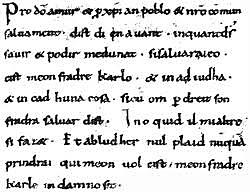 Pro dō amur & p xp̄ian poblo & nr̄o cōmun
saluament. dist di en auant. inquantdſ
sauir & podir medunat. sisaluaraieo.
cist meon fradre Karlo. & in aiudha.
& in cad huna cosa. sicū om p dreit son
fradra saluar dist. Ino quid il mialtre
si fazet. Et abludher nul plaid nūquā
prindrai qui meon uol cist. meonfradre
Karle in damno sit.